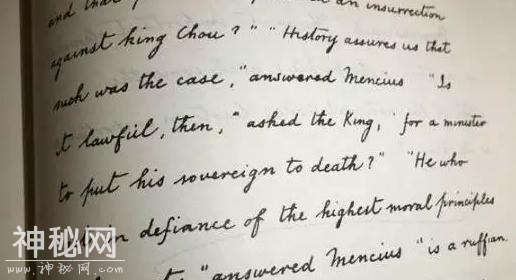 and that
an insurrection
against King Chou?" "History assures us that
such was the case," answered Mencius "Is
it lawful, then," asked the King, "for a minister
to put his sovereign to death?" "He who
in defiance of the highest moral principles
" answered Mencius "is a ruffian.
神秘网
www.神秘网.com